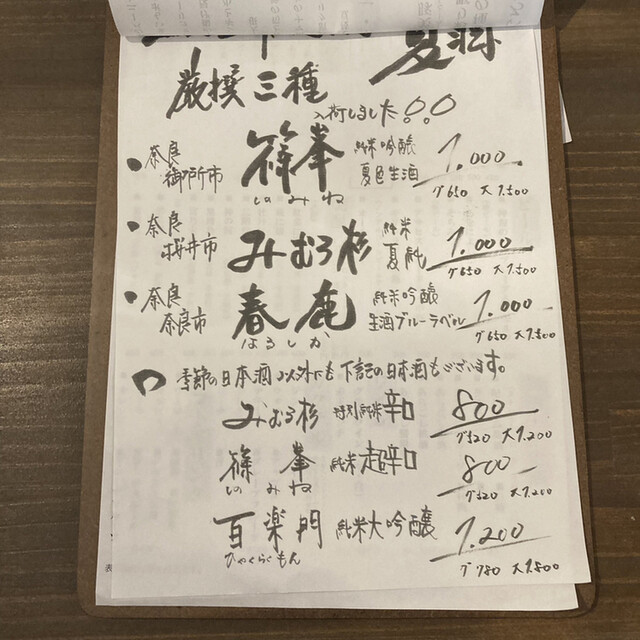 夏酒
厳撰三種
入荷しました!!
奈良
御所市
篠峯
しのみね
純米吟醸
夏色生酒
1.000
グ650 大1.500
奈良
桜井市
みむろ杉
純米
夏純
1.000
グ650 大1.500
奈良
奈良市
春鹿
はるしか
純米吟醸
生酒ブルーラベル
1.000
グ650 大1.500
季節の日本酒以外にも下記の日本酒もございます。
みむろ杉 特別純米辛口 800
グ520 大1.200
篠峯 純米超辛口 800
しのみね
グ520 大1.200
百楽門 純米大吟醸 1.200
ひゃくらくもん
グ780 大1.800